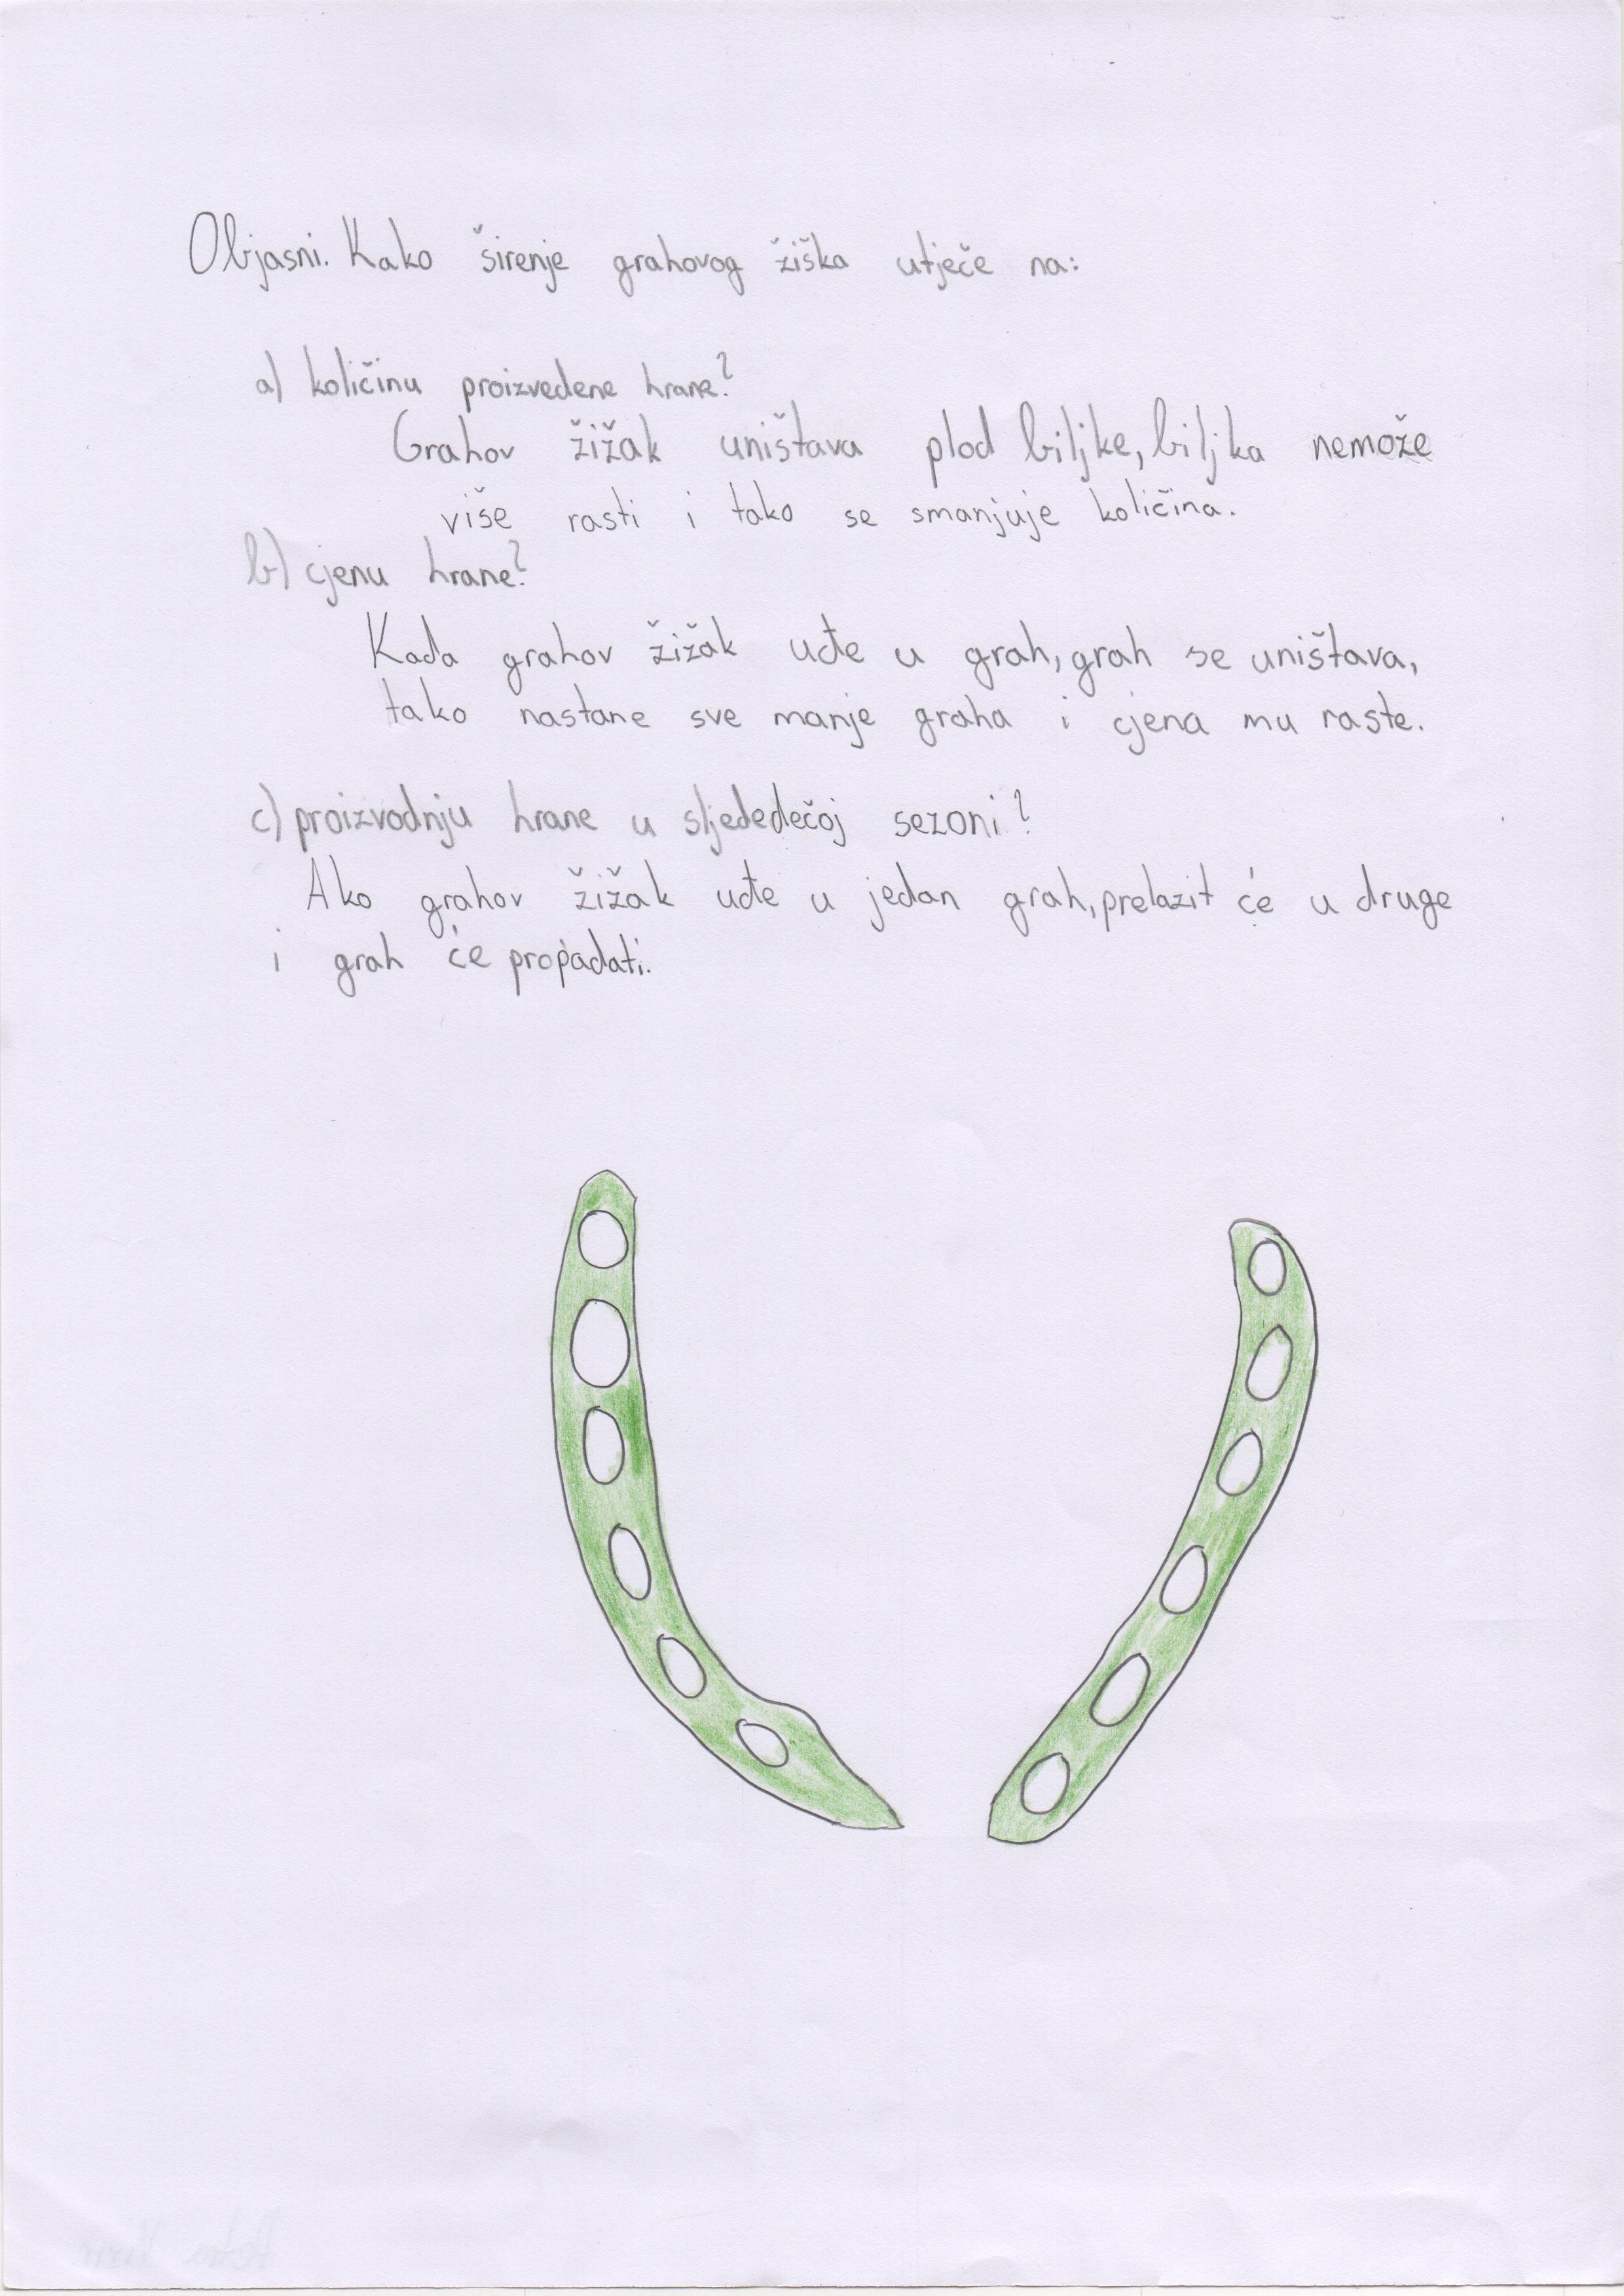 Objasni. Kako širenje grahovog žiška utječe na:
a) količinu proizvedene hrane?
Grahov žižak uništava plod biljke, biljka nemože
više rasti i tako se smanjuje količina.
b) cjenu hrane?
Kada grahov žižak uđe u grah, grah se uništava,
tako nastane sve manje graha i cjena mu raste.
c) proizvodnju hrane u sljededečoj sezoni?
Ako grahov žižak uđe u jedan grah, prelazit će u druge
i grah će propadati.